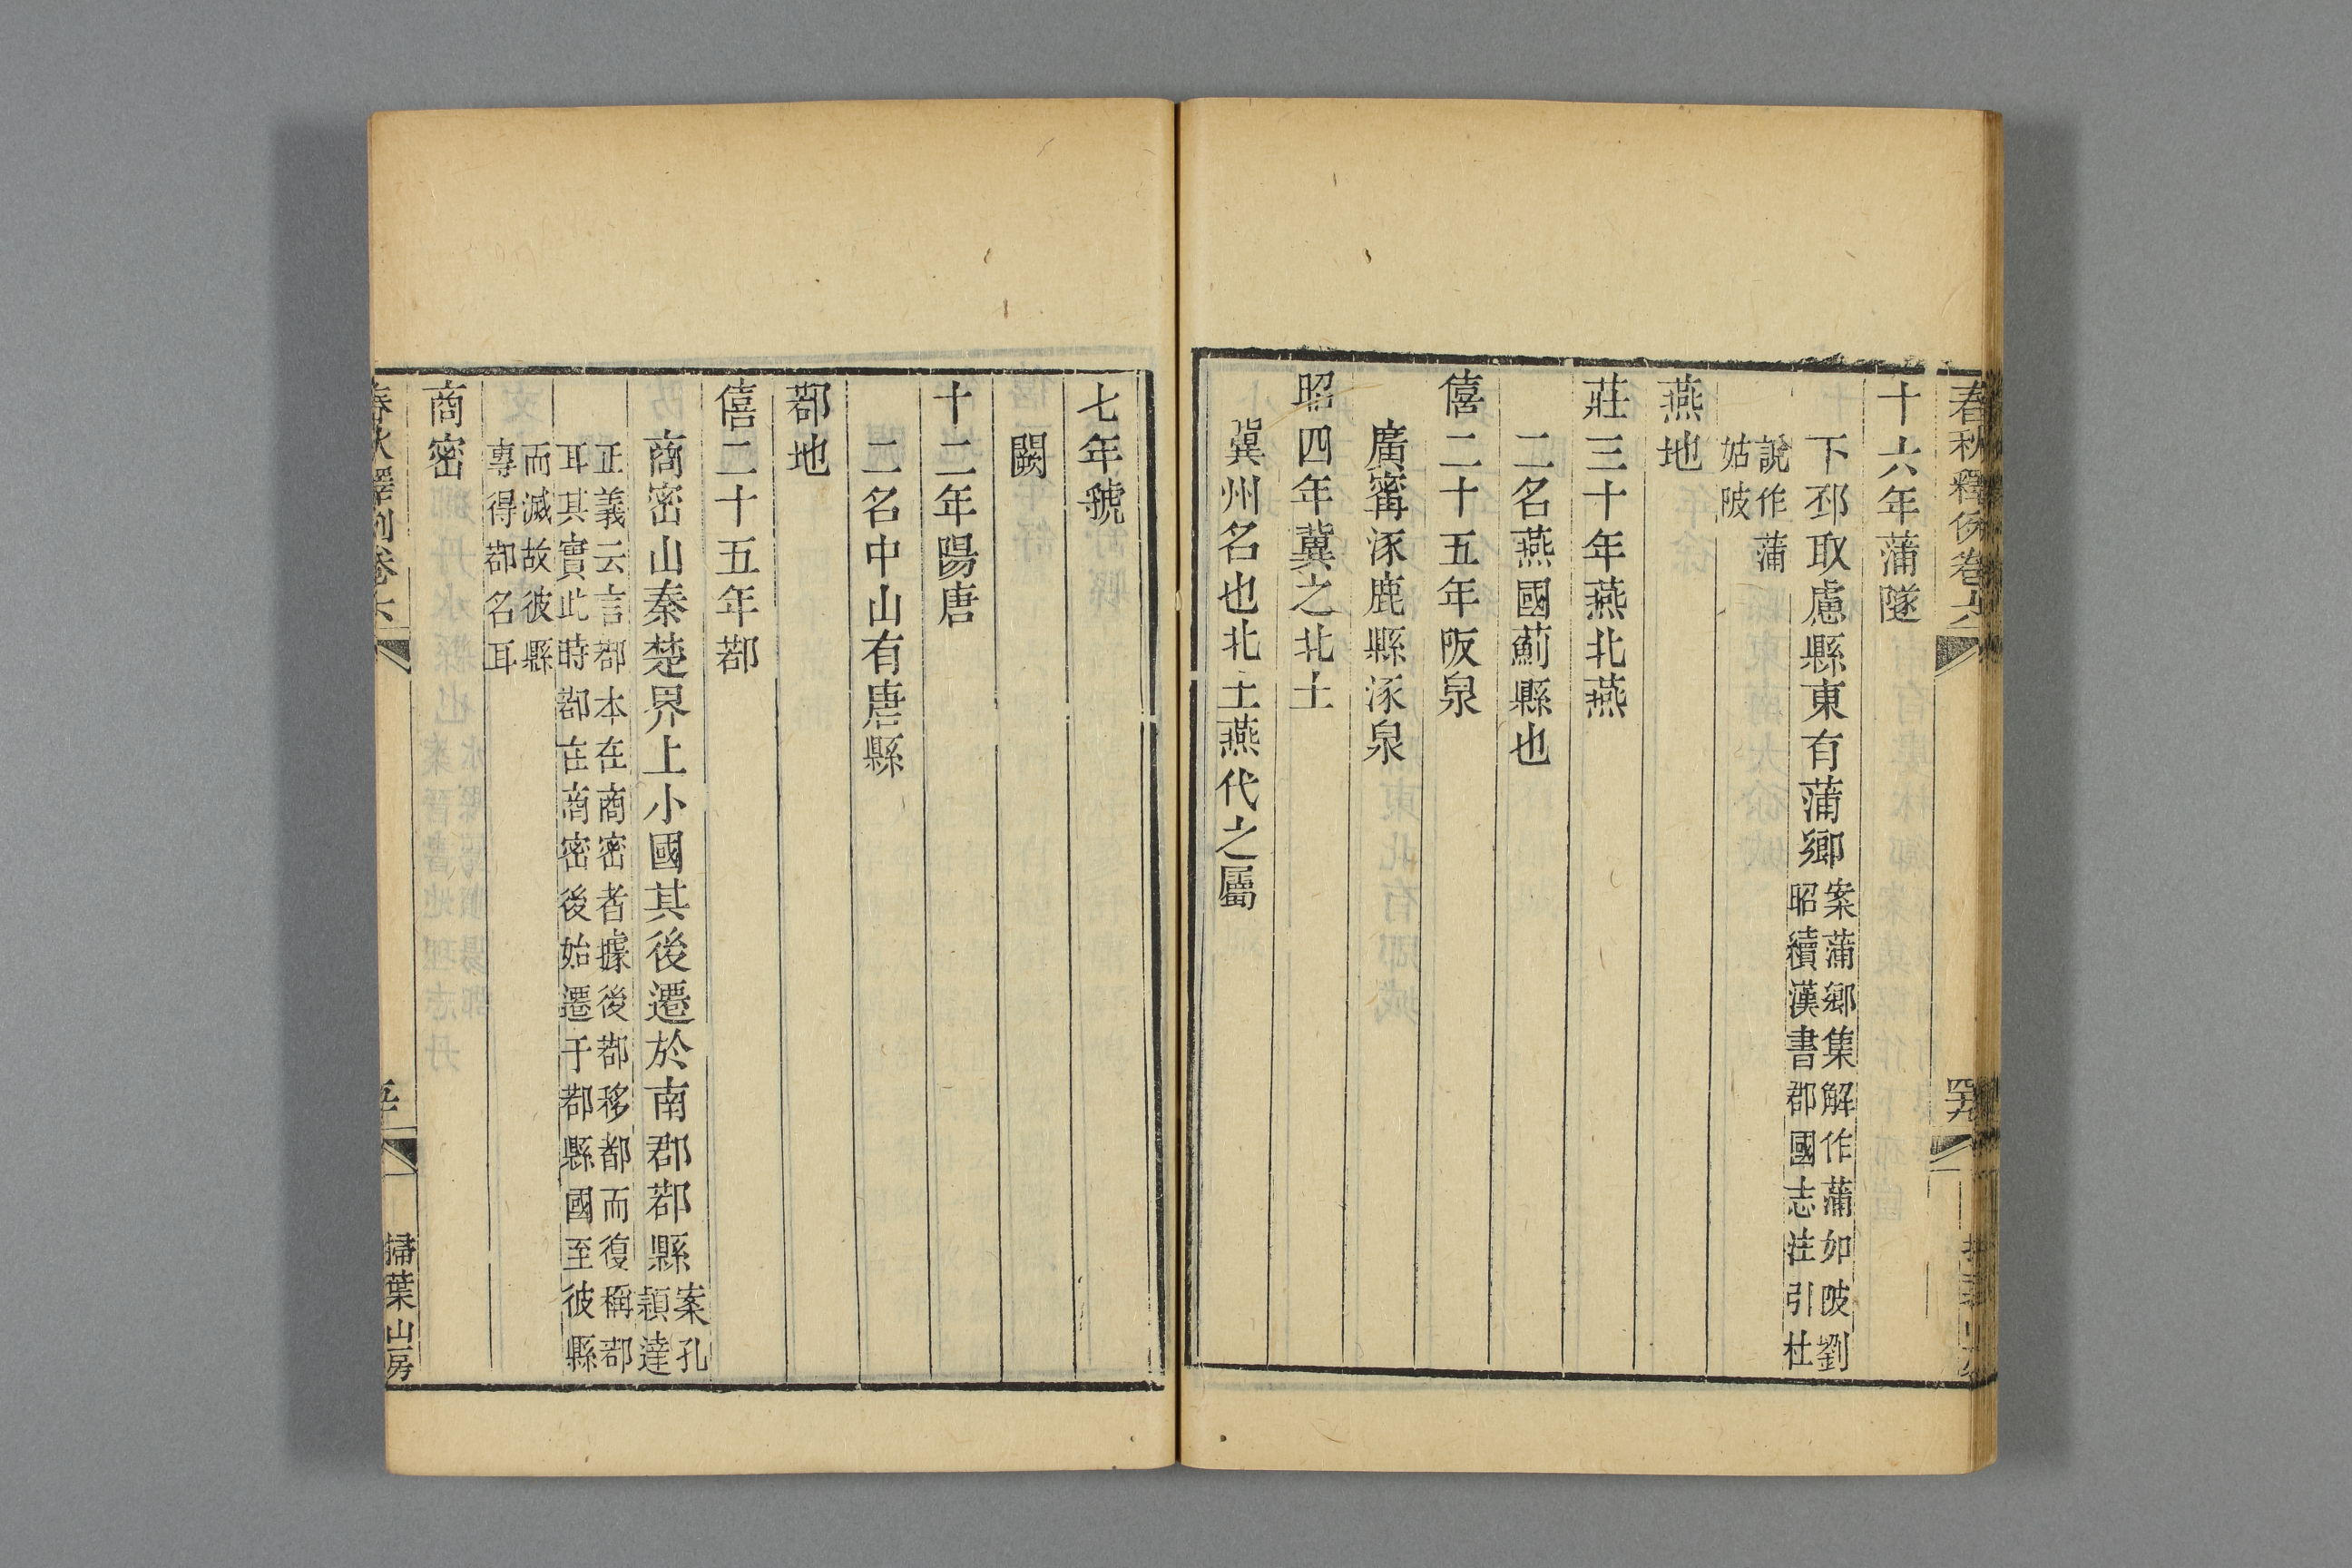 春秋釋例卷六
四九
十六年蒲隧
下邳取慮縣東有蒲鄉案蒲鄉集解作蒲如陂劉
昭續漢書郡國志注引杜
說作蒲
姑陂
燕地
莊三十年燕北燕
二名燕國薊縣也
僖二十五年阪泉
廣甯涿鹿縣涿泉
昭四年冀之北土
冀州名也北土燕代之屬
七年虢
闕
十二年陽唐
二名中山有唐縣
鄀地
僖二十五年鄀
商密山秦楚界上小國其後遷於南郡鄀縣案孔
穎達
正義云言鄀本在商密者據後鄀移都而復稱鄀
耳其實此時鄀在商密後始遷于鄀縣國至彼縣
而滅故彼縣
專得鄀名耳
商密
春秋釋例卷六
掃葉山房